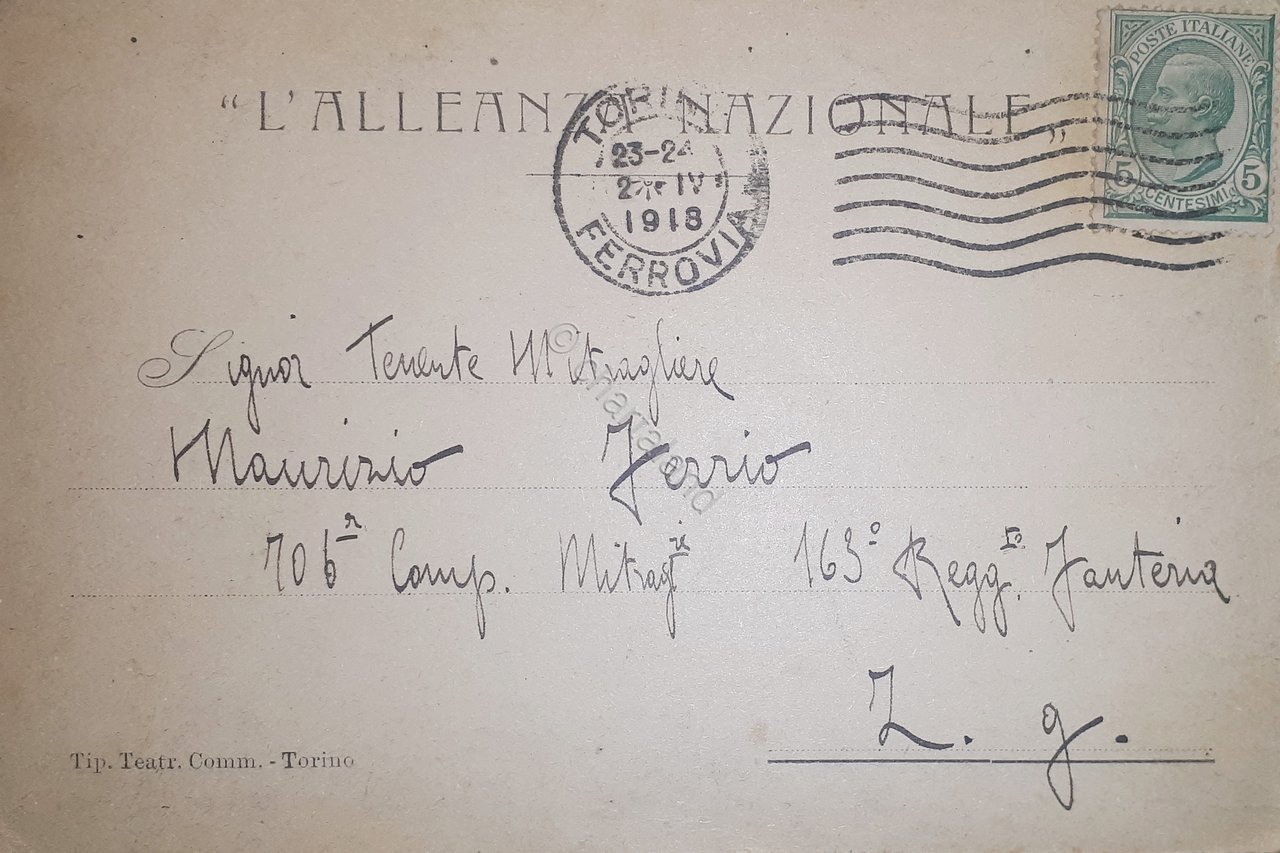 "L'ALLEANZA NAZIONALE„
POSTE ITALIANE
5 5
CENTESIMI
TORINO
23-24
IV
1918
FERROVIA
Signor Tenente Mitragliere
Maurizio Ferrio
706ª Comp. Mitragᵗʳⁱ 163° Regg.ᵗᵒ Fanteria
Z. g.
Tip. Teatr. Comm. - Torino
© Charta bond